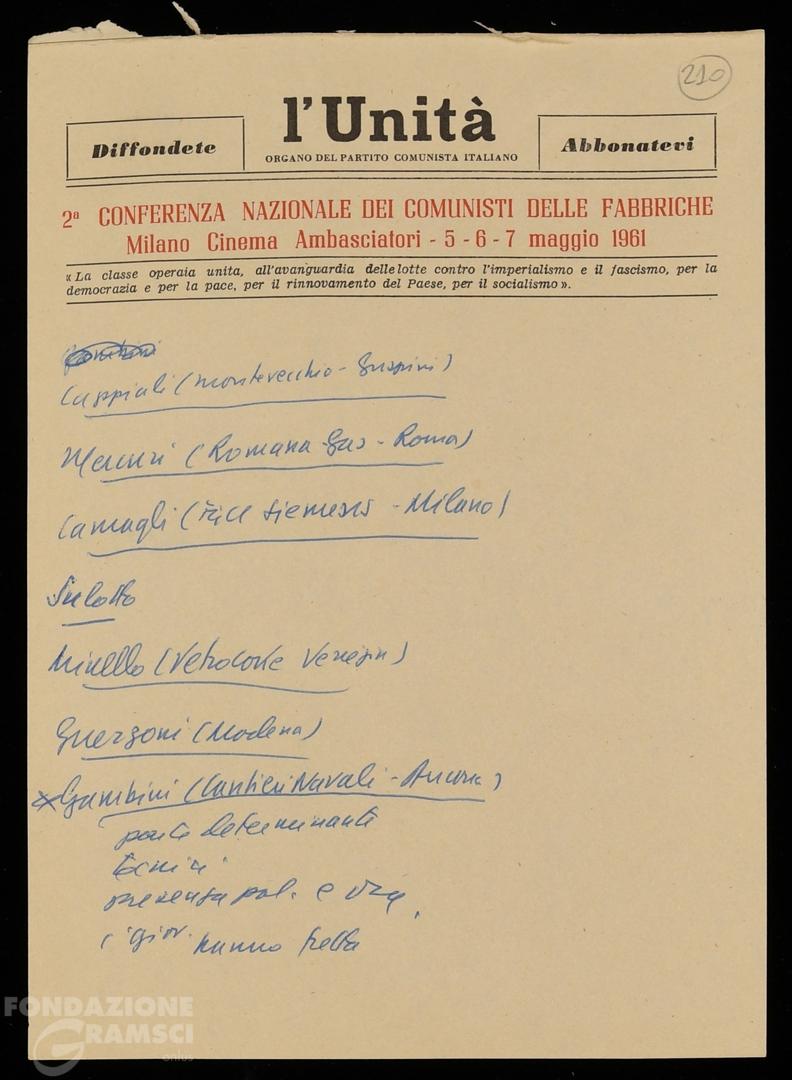 210
l'Unità
Diffondete
ORGANO DEL PARTITO COMUNISTA ITALIANO
Abbonatevi
2ª CONFERENZA NAZIONALE DEI COMUNISTI DELLE FABBRICHE
Milano Cinema Ambasciatori - 5 - 6 - 7 maggio 1961
« La classe operaia unita, all'avanguardia delle lotte contro l'imperialismo e il fascismo, per la
democrazia e per la pace, per il rinnovamento del Paese, per il socialismo ».
(Montevecchio - Guspini)
(Romana Gas - Roma)
Camagli (Face Siemens - Milano)
Sulotto
Minello (Vetrocoke Venezia)
Guerzoni (Modena)
Gambini (Cantieri Navali - Ancona)
determinante
tecnici
presenza pol. e
i giov. hanno fretta
FONDAZIONE
GRAMSCI
onlus